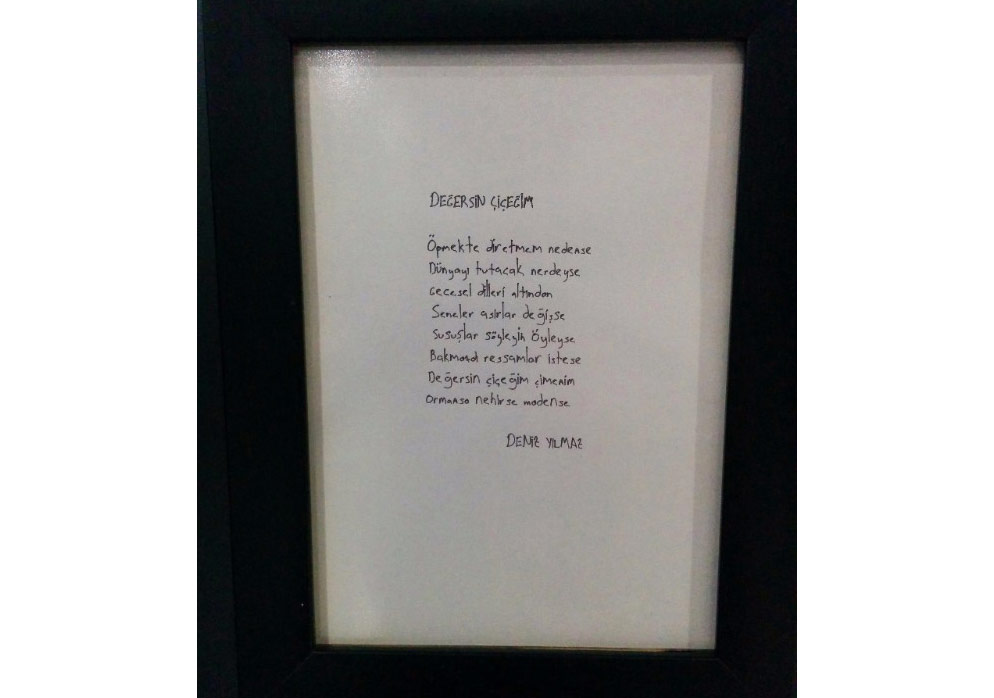 DEĞERSİN ÇİÇEĞİM
Öpmekte diretmem nedense
Dünyayı tutacak nerdeyse
Gecesel dilleri altından
Seneler asırlar değişse
Sususlar söyleyin öyleyse
Bakmasa ressamlar istese
Değersin çiçeğim çimenim
Ormansa nehirse madense
DENİZ YILMAZ